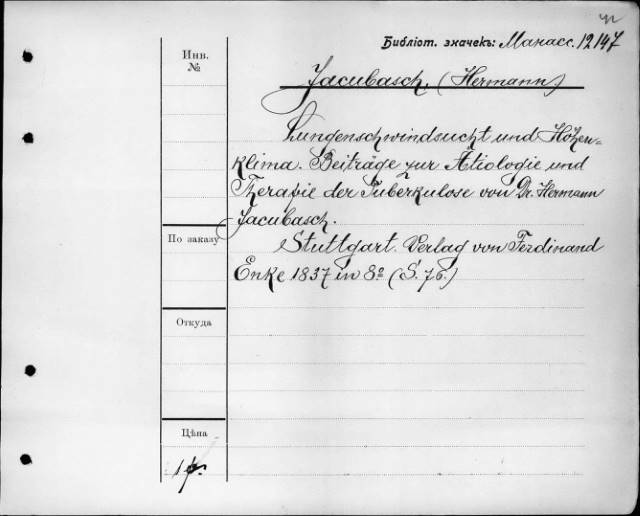 Библіот. значекъ: Манасс. 12147
Инв.
№
Jacubasch, (Hermann)
Lungenschwindsucht und Höhen-
klima. Beiträge zur Ätiologie und
Therapie der Tuberkulose von Dr. Hermann
Jacubasch.
По заказу
Stuttgart. Verlag von Ferdinand
Enke 1887 in 8º (S. 76.)
Откуда
Цѣна
1 р.